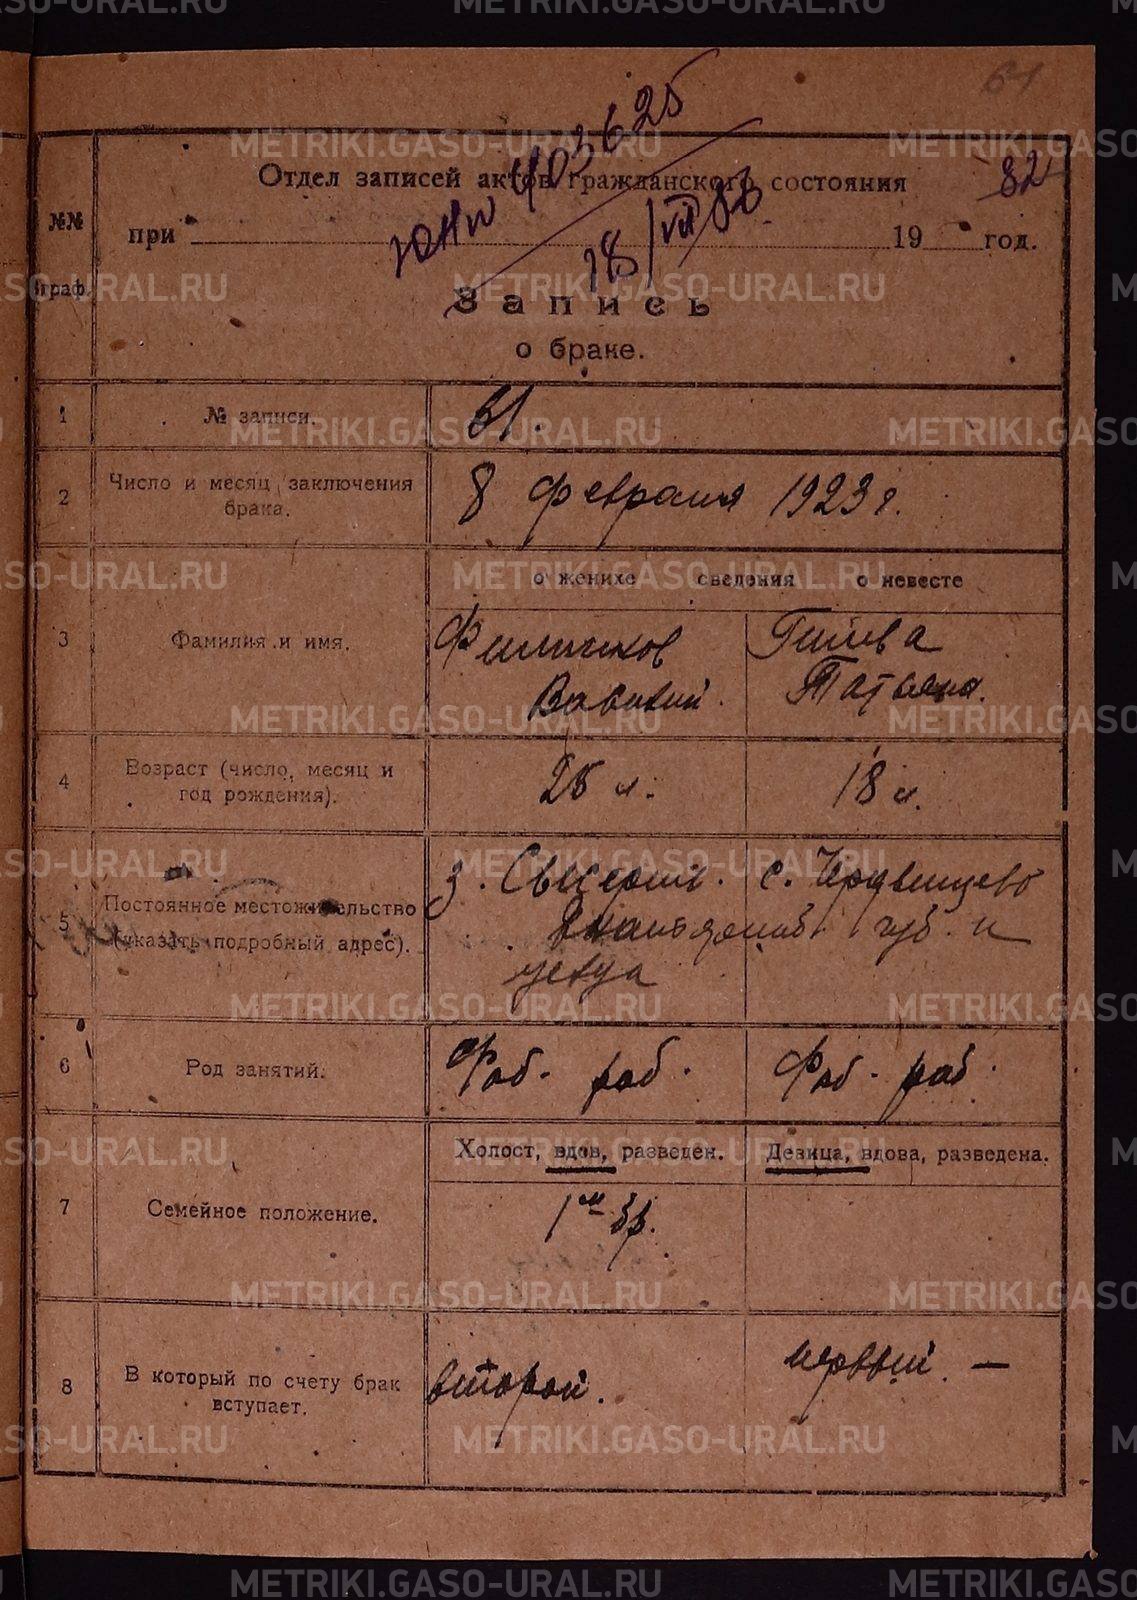 61
Отдел записей актов гражданского состояния
82
№№
граф.
при 19 год.
403625
18/VII 83
Запись
о браке.
1
№ записи.
61.
2
Число и месяц заключения
брака.
8 февраля 1923 г.
о женихе сведения о невесте
3
Фамилия и имя.
Филиппов
Гилева
Татьяна.
4
Возраст (число, месяц и
год рождения).
25 л.
18 л.
5
Постоянное местожительство
(указать подробный адрес).
з.
с.
губ. и
уезда
6
Род занятий.
Фаб. раб.
Фаб. раб.
7
Семейное положение.
Холост, вдов, разведен.
Девица, вдова, разведена.
1м бр.
8
В который по счету брак
вступает.
второй.
первый —
METRIKI.GASO-URAL.RU